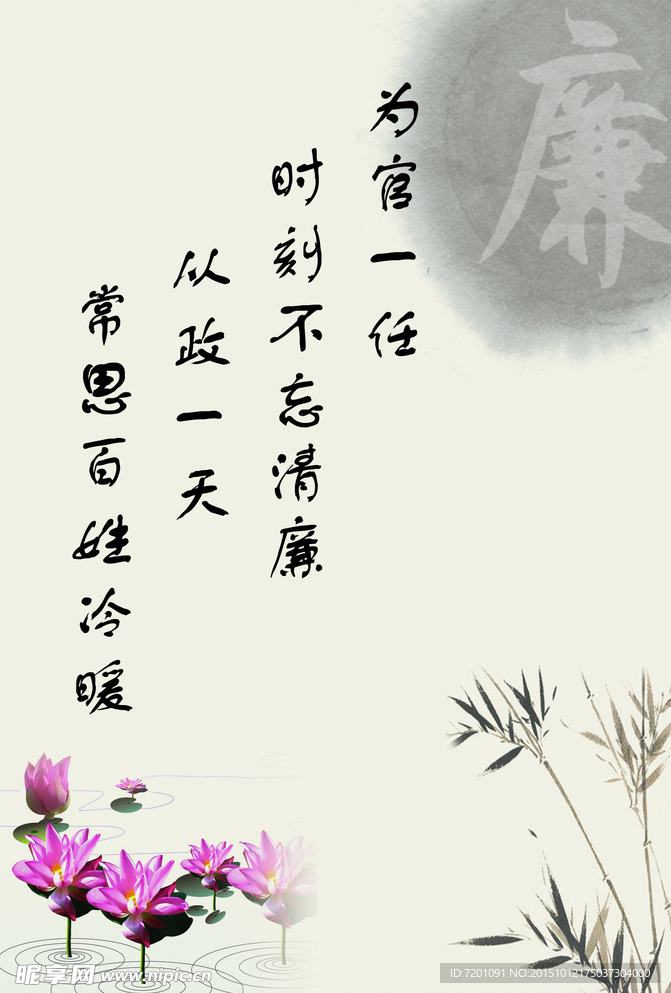 廉
为官一任
时刻不忘清廉
从政一天
常思百姓冷暖
昵享网 www.nipic.cn
ID:7201091 NO:20151012175037304000